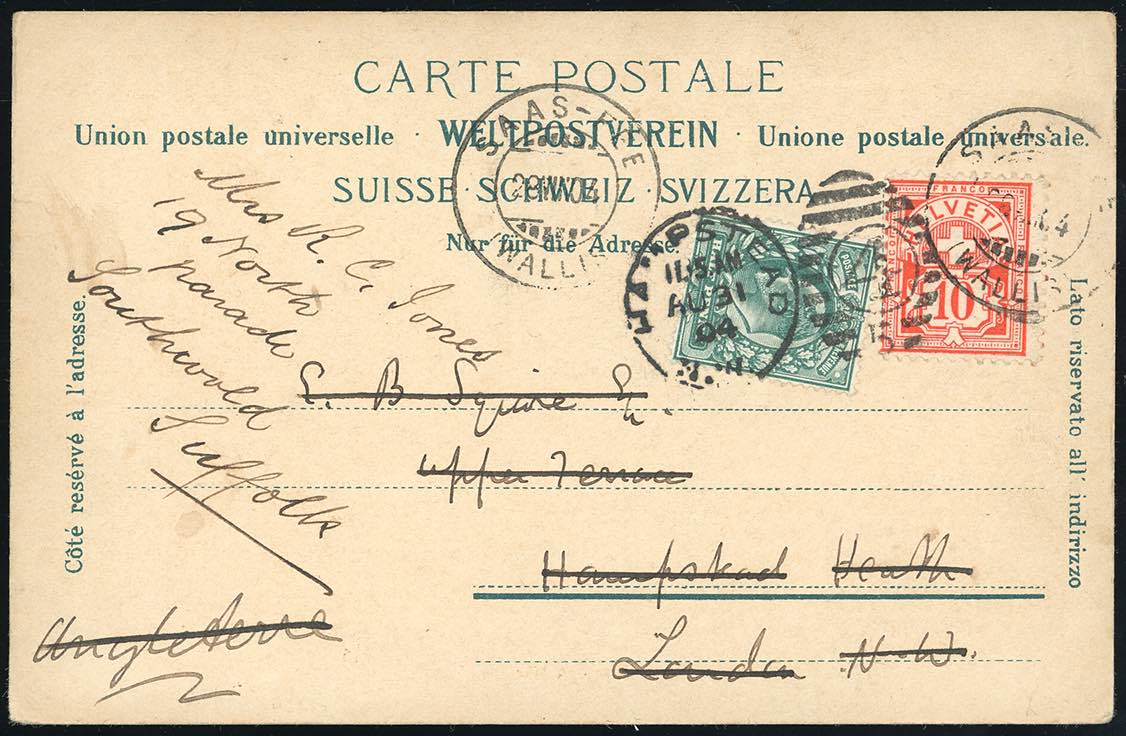 CARTE POSTALE
Union postale universelle · WELTPOSTVEREIN · Unione postale universale.
SUISSE · SCHWEIZ · SVIZZERA
Nur für die Adresse.
Côté resérvé à l'adresse.
Lato riservato all' indirizzo
SAAS-FEE
29.VIII.04
(WALLIS)
SAAS
4
WALLIS
HAMPSTEAD
11.15AM
AU 31
04
N.W.
POSTAGE
REVENUE
FRANCO
HELVETIA
10
Mrs R. C. Jones
19 North
parade
Southwold
Suffolk
E. B Squire Esq.
Upper Terrace
Hampstead Heath
London N. W.
Angleterre